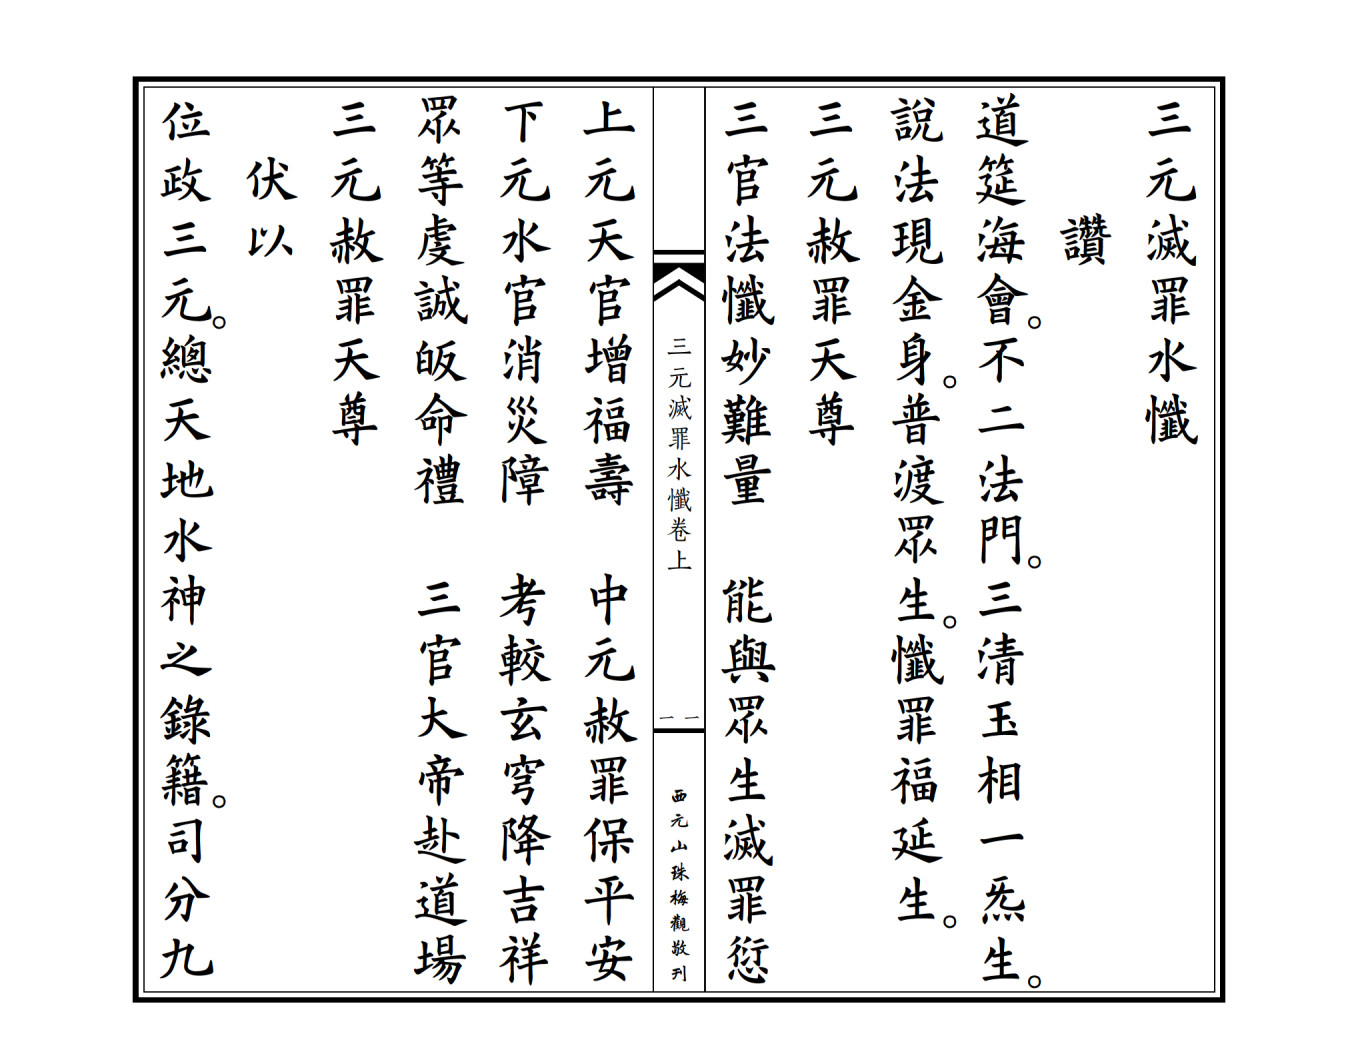 三元滅罪水懺
讚
道筵海會。不二法門。三清玉相一炁生。
說法現金身。普渡眾生。懺罪福延生。
三元赦罪天尊
三官法懺妙難量　能與眾生滅罪愆
三元滅罪水懺卷上
一一
西元山珠梅觀敬刊
上元天官增福壽　中元赦罪保平安
下元水官消災障　考較玄穹降吉祥
眾等虔誠皈命禮　三官大帝赴道場
三元赦罪天尊
伏以
位政三元。總天地水神之錄籍。司分九